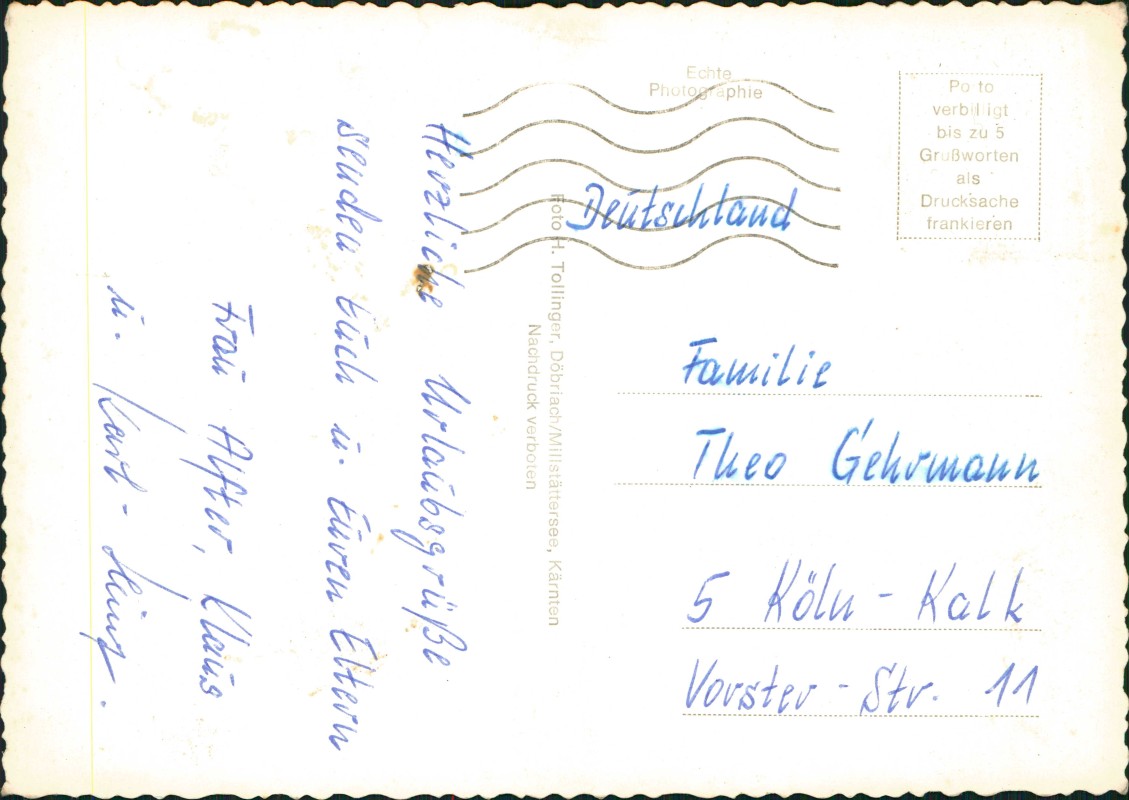 Echte
Photographie
Po to
verbilligt
bis zu 5
Grußworten
als
Drucksache
frankieren
Herzliche Urlaubsgrüße
senden Euch u. Euren Eltern
Frau Alfter, Klaus
u. Karl-Heinz.
Foto H. Tollinger, Döbriach/Millstättersee, Kärnten
Nachdruck verboten
Deutschland
Familie
Theo Gehrmann
5 Köln - Kalk
Vorster - Str. 11